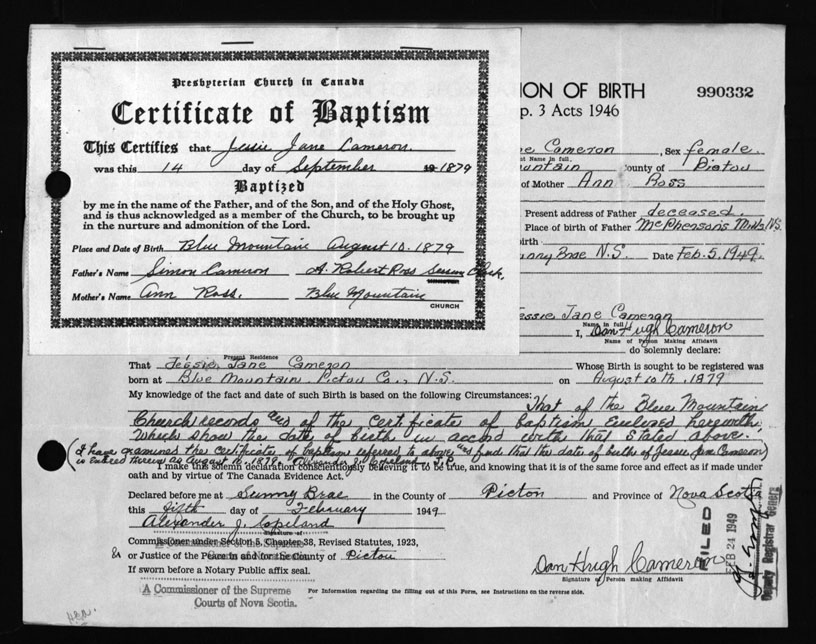 Presbyterian Church in Canada
Certificate of Baptism
This Certifies that Jessie Jane Cameron.
was this 14 day of September 1879
Baptized
by me in the name of the Father, and of the Son, and of the Holy Ghost,
and is thus acknowledged as a member of the Church, to be brought up
in the nurture and admonition of the Lord.
Place and Date of Birth Blue Mountain August 10. 1879
Father's Name Simon Cameron A. Robert Ross Session Clerk.
Mother's Name Ann Ross. Blue Mountain
CHURCH
ION OF BIRTH 990332
p. 3 Acts 1946
ne Cameron, Sex female.
nt Name in full.
untain County of Pictou
of Mother Ann Ross
Present address of Father deceased.
Place of birth of Father McPhersons Mills N.S.
irth
unny Brae N.S. Date Feb. 5, 1949.
Jessie Jane Cameron
Name in full
I, Dan Hugh Cameron
Name of Person Making Affidavit
Present Residence do solemnly declare:
That Jessie Jane Cameron Whose Birth is sought to be registered was
born at Blue Mountain Pictou Co., N.S. on August 10th, 1879
My knowledge of the fact and date of such Birth is based on the following Circumstances: That of the Blue Mountain
Church records and of the certificate of baptism Enclosed herewith
Which show the date of birth in accord with that stated above.
(I have examined the certificate of baptism referred to above and find that the date of birth of Jessie Jane Cameron)
is entered therein as August 10, 1879. Alexander J. Copeland
I make this solemn declaration conscientiously believing it to be true, and knowing that it is of the same force and effect as if made under
oath and by virtue of The Canada Evidence Act.
Declared before me at Sunny Brae in the County of Pictou and Province of Nova Scotia
this fifth day of February 1949
Alexander J. Copeland
Signature of
Commissioner under Section 5, Chapter 38, Revised Statutes, 1923,
or Justice of the Peace in and for the County of Pictou
If sworn before a Notary Public affix seal.
Dan Hugh Cameron
Signature of Person making Affidavit
A Commissioner of the Supreme
Courts of Nova Scotia.
For Information regarding the filling out of this Form, see Instructions on the reverse side.
FILED
FEB 24 1949
Deputy Registrar General